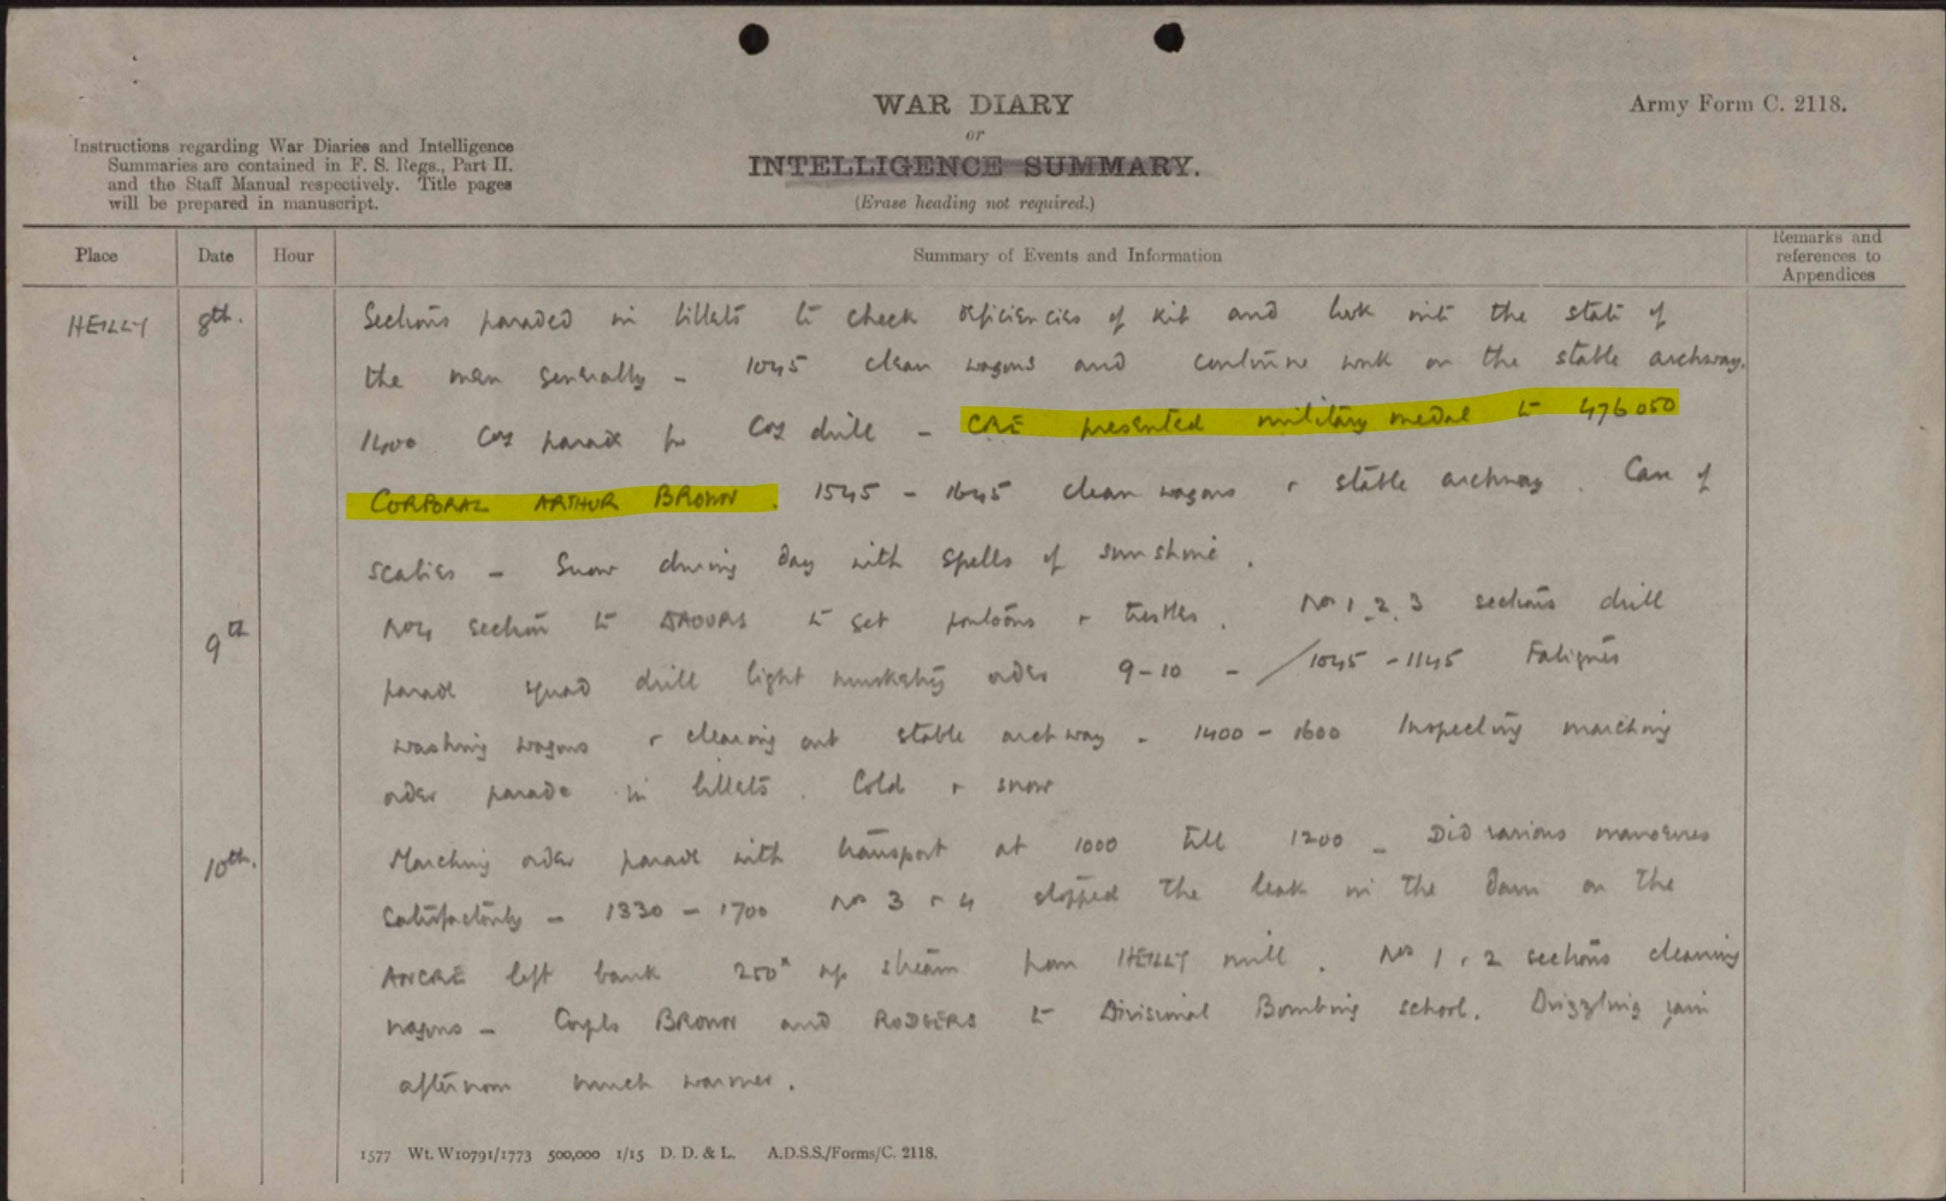 WAR DIARY
or
INTELLIGENCE SUMMARY.
(Erase heading not required.)
Army Form C. 2118.
Instructions regarding War Diaries and Intelligence
Summaries are contained in F. S. Regs., Part II.
and the Staff Manual respectively. Title pages
will be prepared in manuscript.
Place Date Hour Summary of Events and Information Remarks and
references to
Appendices
HEILLY 8th. Sections paraded in billets to check deficiencies of kit and look into the state of
the men generally - 1045 clean wagons and continue work on the stable archway.
1400 Coy parade for Coy drill - CRE presented military medal to 476050
CORPORAL ARTHUR BROWN. 1545 - 1645 clean wagons + stable archway. Case of
scabies - Snow during day with spells of sunshine.
9th No 4 section to DAOURS to get pontoons + trestles. Nos 1, 2, 3 sections drill
parade squad drill light musketry order 9-10 - / 1045 - 1145 Fatigues
washing wagons + cleaning out stable archway - 1400 - 1600 Inspecting marching
order parade in billets. Cold + snow
10th. Marching order parade with transport at 1000 till 1200 - Did various manoevres
satisfactorily - 1330 - 1700 Nos 3 + 4 stopped the leak in the dam on the
ANCRE left bank 250x up stream from HEILLY mill. Nos 1 + 2 sections cleaning
wagons - Corpls BROWN and RODGERS to Divisional Bombing school. Drizzling rain
afternoon much warmer.
1577 Wt. W10791/1773 500,000 1/15 D. D. & L. A.D.S.S./Forms/C. 2118.